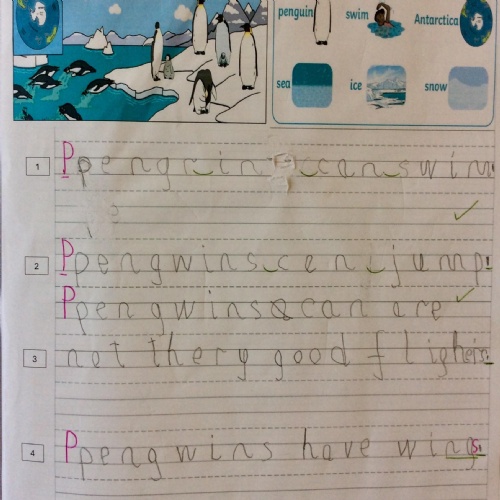 penguin swim Antarctica
sea ice snow
1 Ppenguin can swim
2 Ppengwins cen jump.
Ppengwins can are
3 not thery good fligheis.
4 Ppengwins have wings.